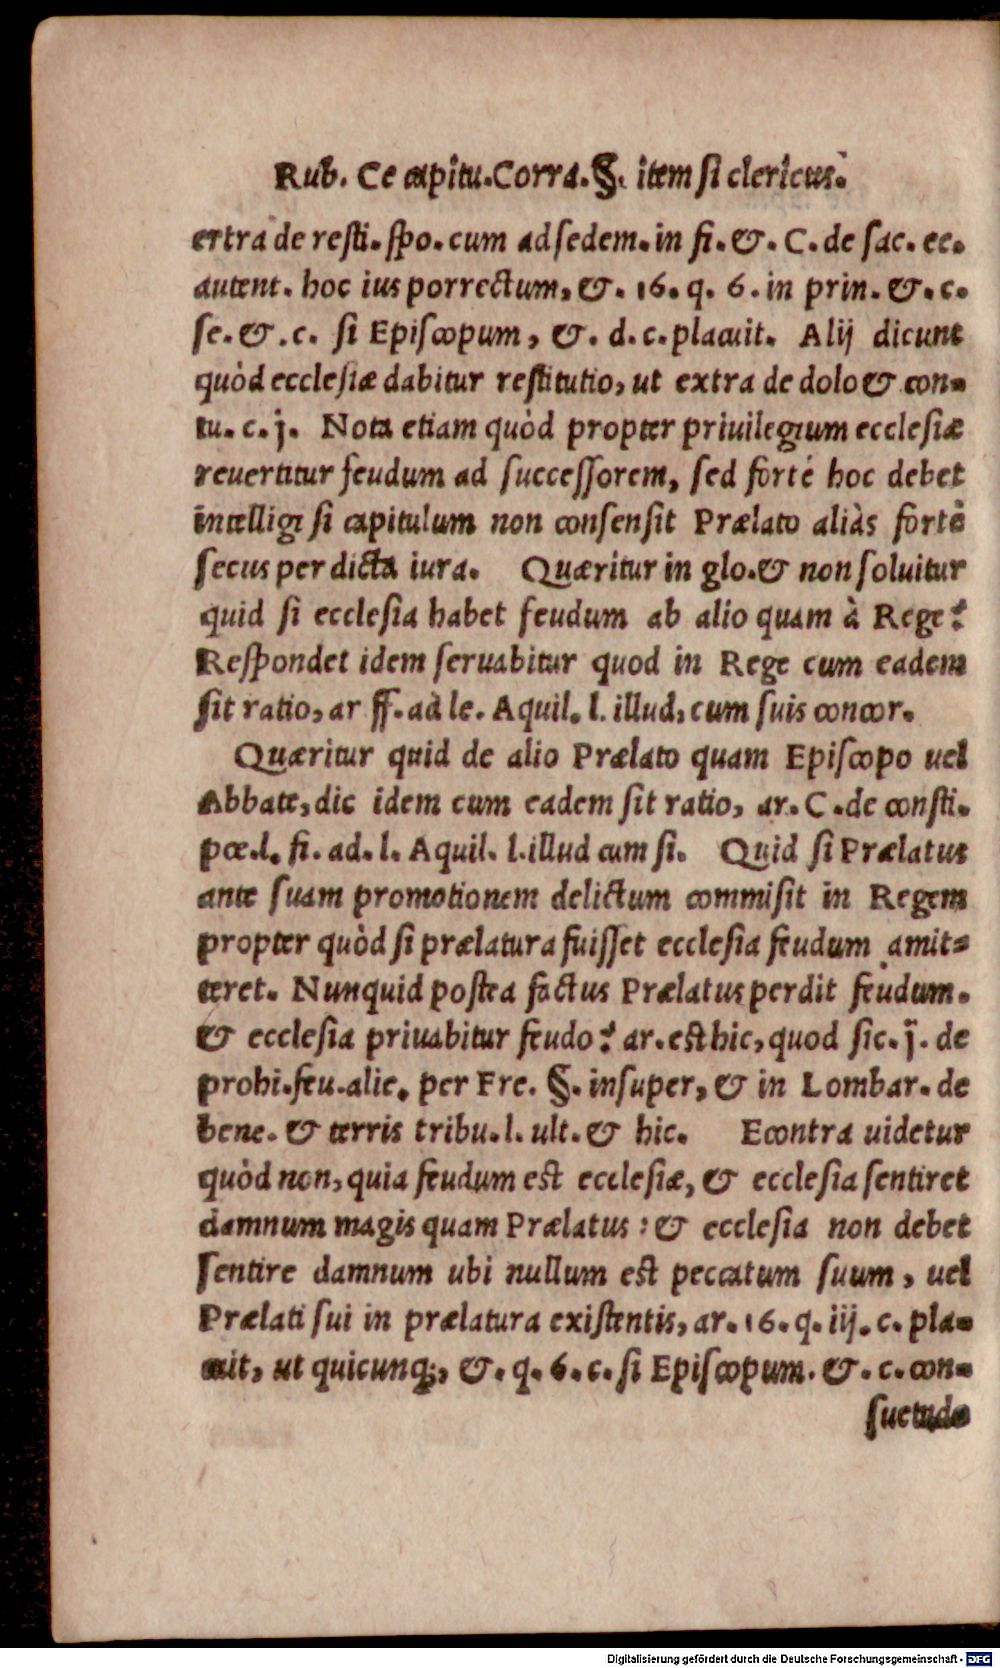 Rub. Ce capitu. Corra. §. item si clericus.
ertra de resti. spo. cum ad sedem. in fi. &. C. de sac. ec.
autent. hoc ius porrectum, &. 16. q. 6. in prin. &. c.
se. &. c. si Episcopum, &. d. c. placuit. Alij dicunt
quòd ecclesiæ dabitur restitutio, ut extra de dolo & con-
tu. c. j. Nota etiam quòd propter priuilegium ecclesiæ
reuertitur feudum ad successorem, sed fortè hoc debet
intelligi si capitulum non consensit Prælato aliàs fortè
secus per dicta iura. Quæritur in glo. & non soluitur
quid si ecclesia habet feudum ab alio quam à Rege?
Respondet idem seruabitur quod in Rege cum eadem
sit ratio, ar ff. ad le. Aquil. l. illud, cum suis concor.
Quæritur quid de alio Prælato quam Episcopo uel
Abbate, dic idem cum eadem sit ratio, ar. C. de consti.
pœ. l. fi. ad. l. Aquil. l. illud cum si. Quid si Prælatus
ante suam promotionem delictum commisit in Regem
propter quòd si prælatura fuisset ecclesia feudum amit-
teret. Nunquid postea factus Prælatus perdit feudum.
& ecclesia priuabitur feudo? ar. est hic, quod sic. j. de
prohi. feu. alie. per Fre. §. insuper, & in Lombar. de
bene. & terris tribu. l. ult. & hic. Econtra uidetur
quòd non, quia feudum est ecclesiæ, & ecclesia sentiret
damnum magis quam Prælatus: & ecclesia non debet
sentire damnum ubi nullum est peccatum suum, uel
Prælati sui in prælatura existentis, ar. 16. q. iij. c. pla-
cuit, ut quicunq;, &. q. 6. c. si Episcopum. &. c. con-
suetudo
Digitalisierung gefördert durch die Deutsche Forschungsgemeinschaft - DFG